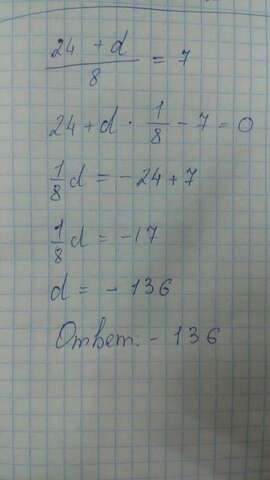 (24 + d)/8 = 7
24 + d · 1/8 - 7 = 0
1/8 d = -24 + 7
1/8 d = -17
d = - 136
Ответ: - 136